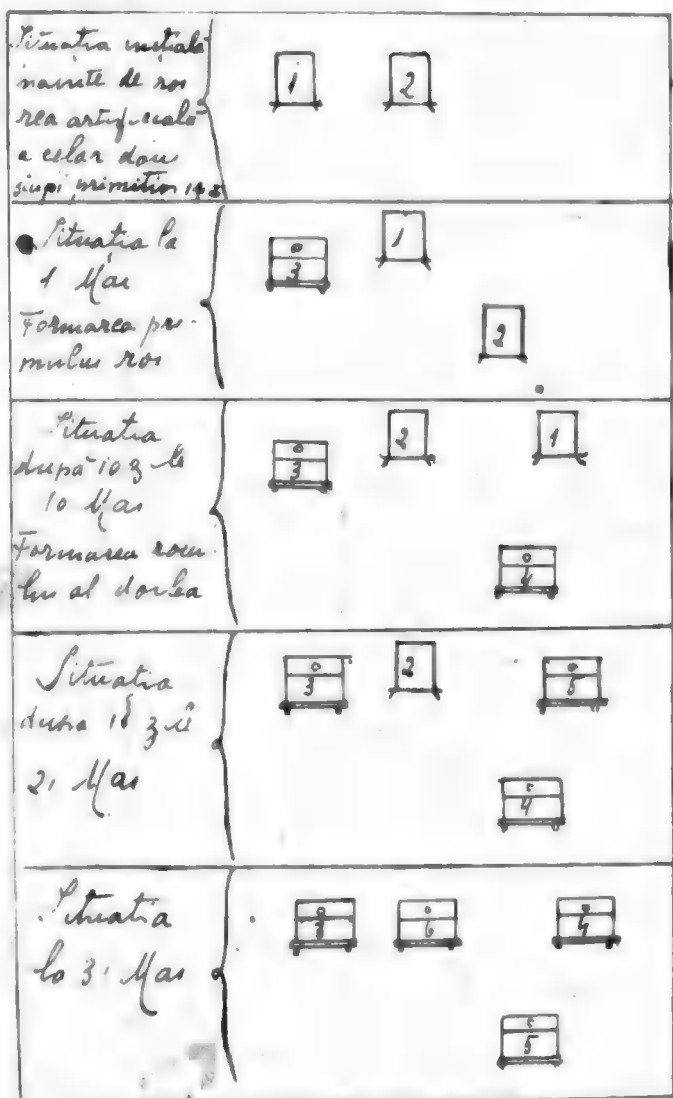 Situatia initială
nainte de roi
rea artificială
a celor doui
stupi primitivi 1 și 2
1 2
Situatia la
1 Mai
Formarea pri-
mului roi
1
3
2
Situatia
după 10 zile
10 Mai
Formarea roiu
lui al doilea
2 1
3
4
Situatia
dupa 18 zile
21 Mai
3 2 5
4
Situatia
la 31 Mai
3 6 4
5